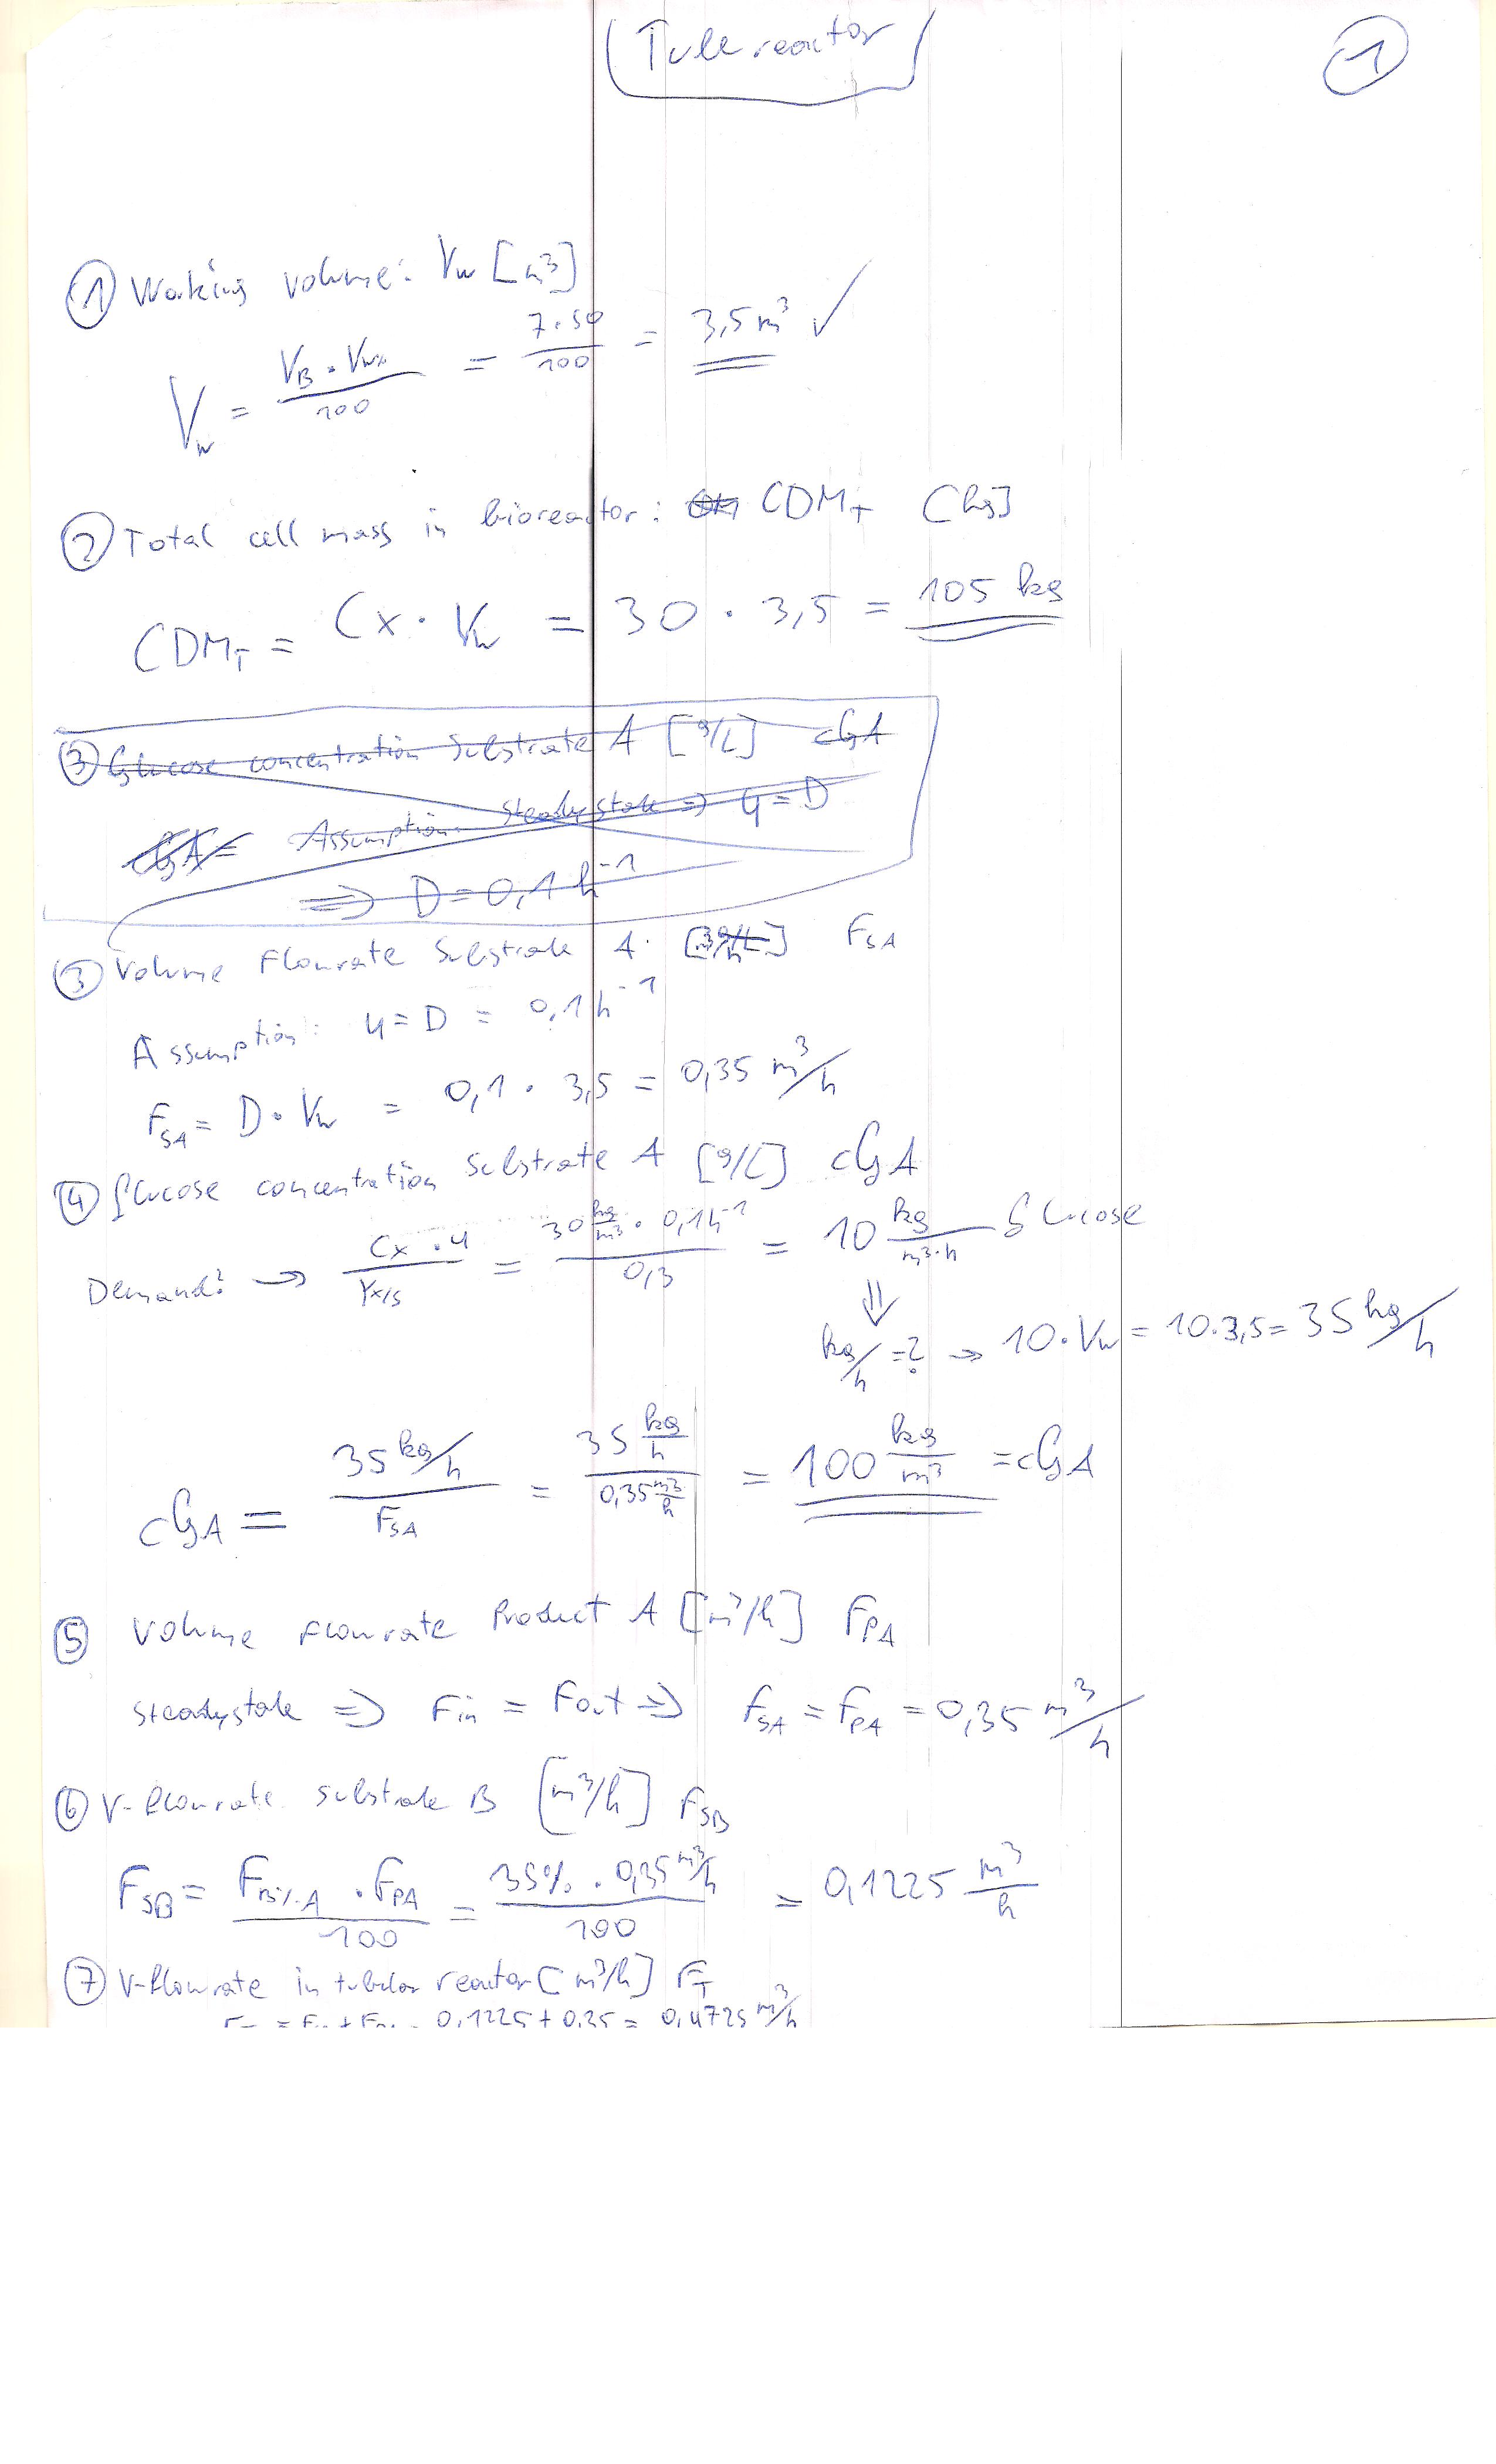 Tubereactor
1
① Working volume: Vw [m³]
Vw = VB · Vw% / 100 = 7·50 / 100 = 3,5 m³ ✓
② Total cell mass in bioreactor: CDM_T [kg]
CDM_T = Cx · Vw = 30 · 3,5 = 105 kg
③ Glucose concentration Substrate A [g/L] cGA
cGA = Assumption steadystate => μ = D
=> D = 0,1 h⁻¹
③ Volume Flowrate Substrate A [m³/h] F_SA
Assumption: μ = D = 0,1 h⁻¹
F_SA = D · Vw = 0,1 · 3,5 = 0,35 m³/h
④ Glucose concentration Substrate A [g/L] cGA
Demand? → Cx · μ / Yx/s = 30 kg/m³ · 0,1 h⁻¹ / 0,3 = 10 kg/m³·h Glucose
⇓
kg/h = ? → 10 · Vw = 10 · 3,5 = 35 kg/h
cGA = 35 kg/h / F_SA = 35 kg/h / 0,35 m³/h = 100 kg/m³ = cGA
⑤ Volume Flowrate Product A [m³/h] F_PA
Steadystate => Fin = Fout => F_SA = F_PA = 0,35 m³/h
⑥ V-flowrate substrate B [m³/h] F_SB
F_SB = F_B%A · F_PA / 100 = 35% · 0,35 m³/h / 100 = 0,1225 m³/h
⑦ V-flowrate in tubular reactor [m³/h] F_T
0,1225 + 0,35 = 0,4725 m³/h